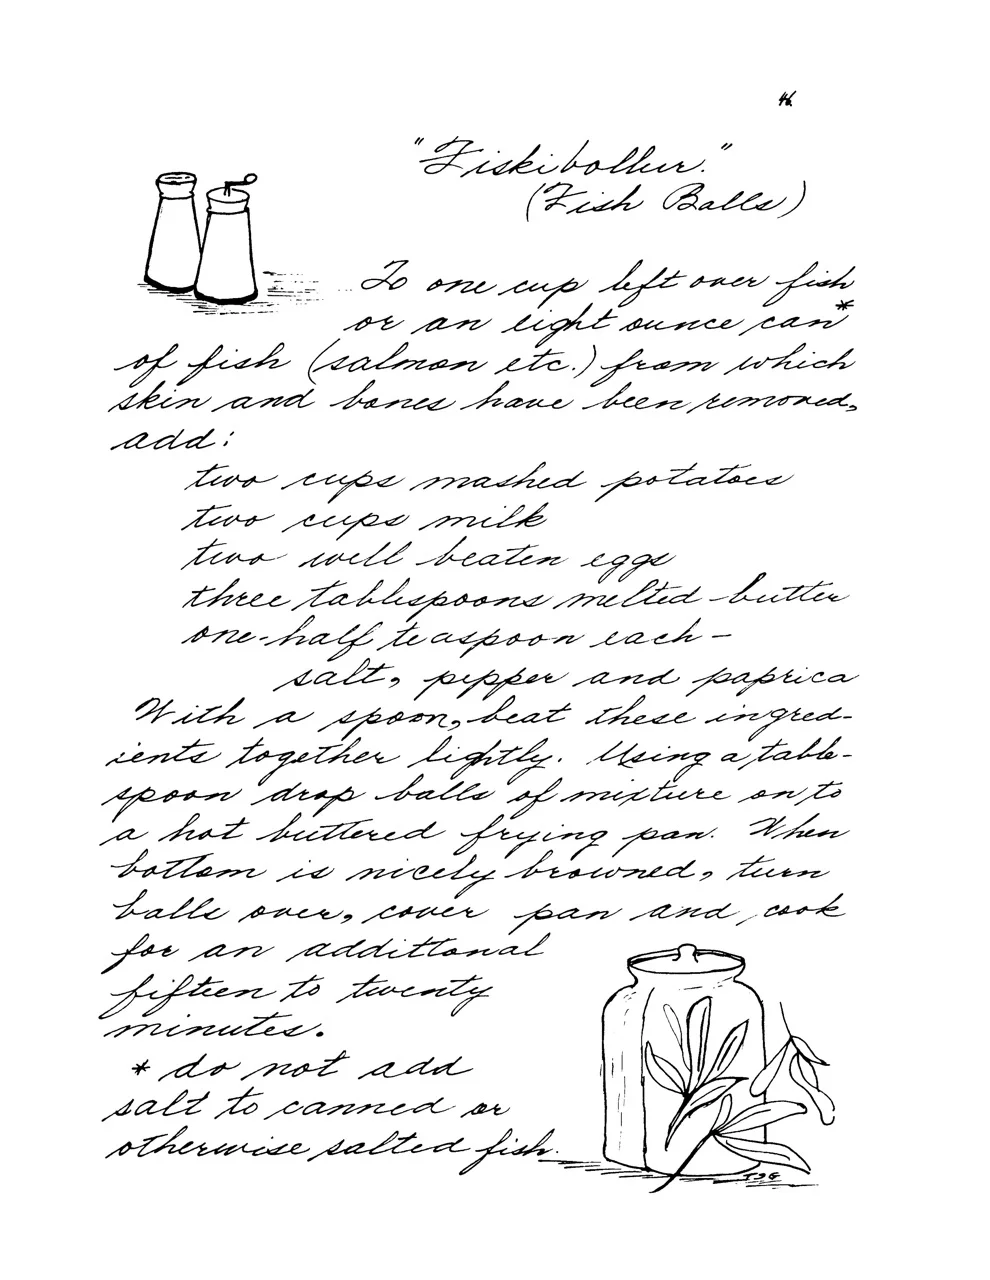 46.
"Fiskibollur."
(Fish Balls)
To one cup left over fish
or an eight ounce can*
of fish (salmon etc.) from which
skin and bones have been removed,
add:
two cups mashed potatoes
two cups milk
two well beaten eggs
three tablespoons melted butter
one-half teaspoon each-
salt, pepper and paprica
With a spoon, beat these ingred-
ients together lightly. Using a table-
spoon drop balls of mixture on to
a hot buttered frying pan. When
bottom is nicely browned, turn
balls over, cover pan and cook
for an additional
fifteen to twenty
minutes.
* do not add
salt to canned or
otherwise salted fish.